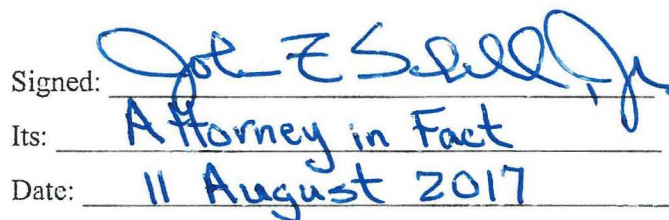 Signed: John E Schell, Jr
Its: Attorney in Fact
Date: 11 August 2017